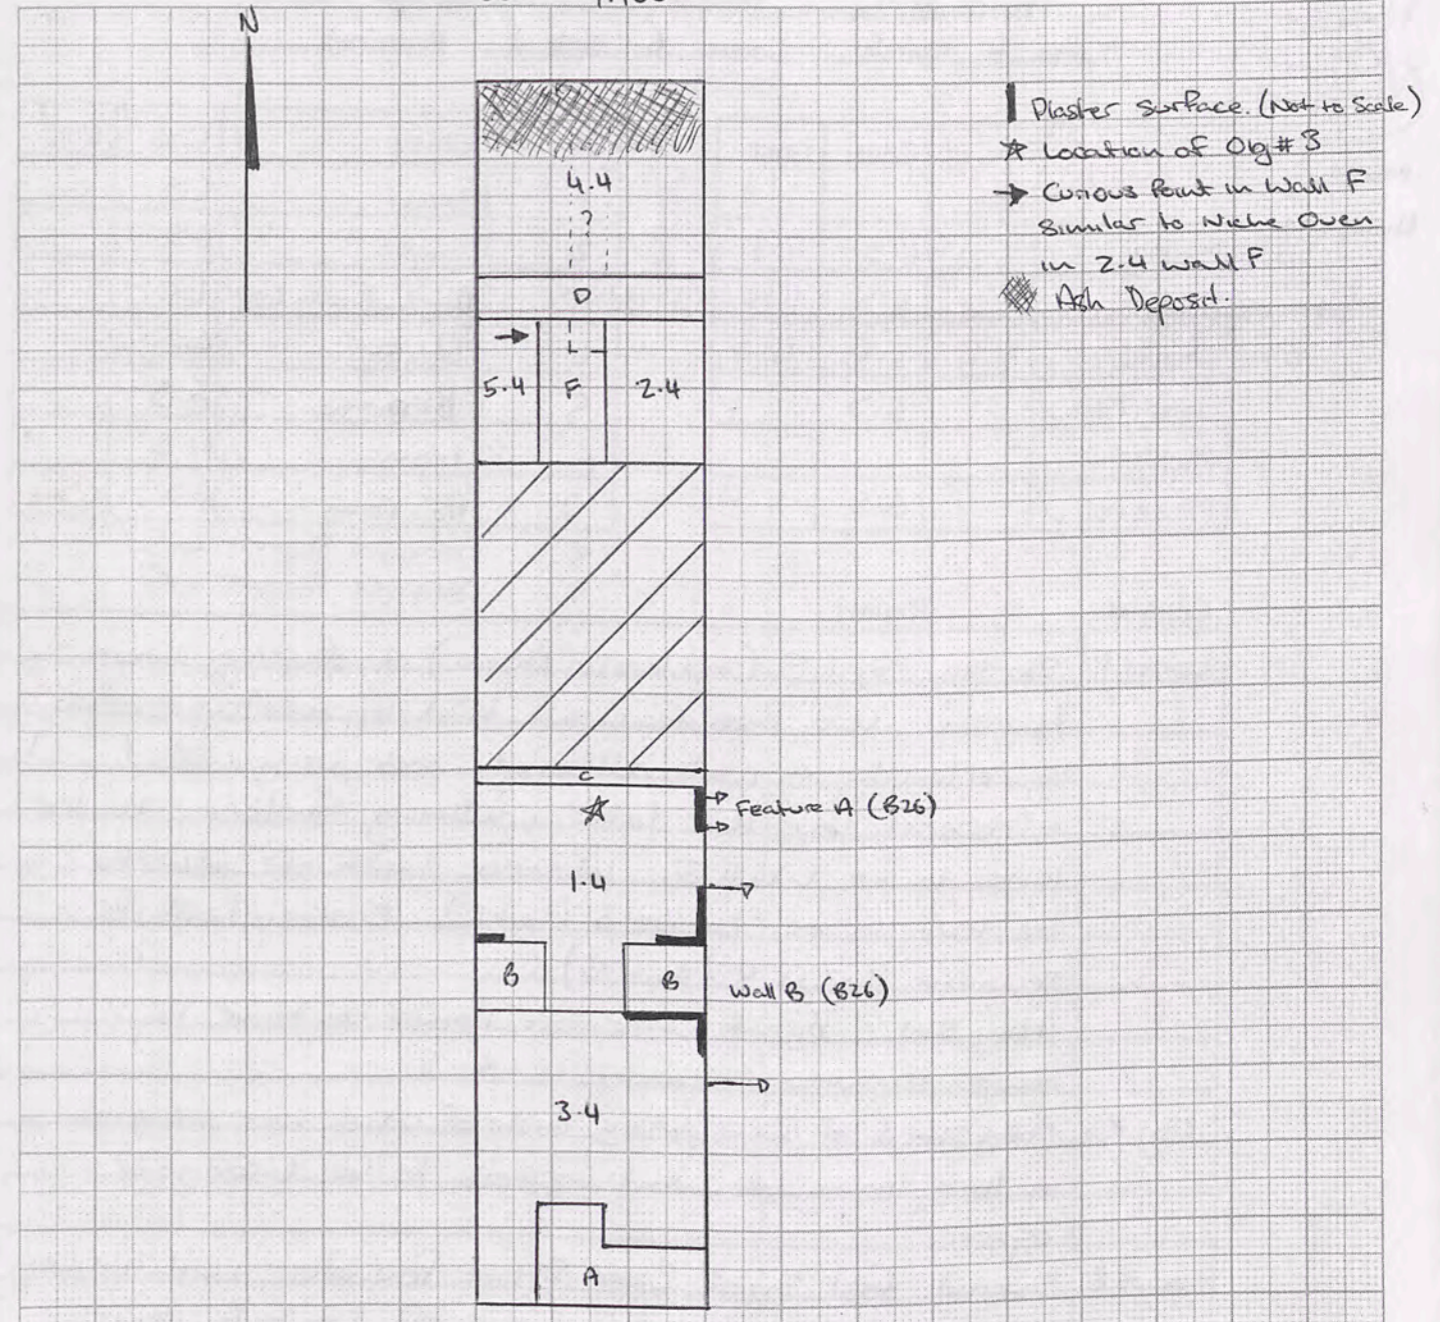 N
Plaster surface. (Not to Scale)
Location of Obj # 3
Curious Point in Wall F
Similar to Niche Oven
in 2.4 wall F
Ash Deposit.
4.4
?
D
5.4
F
2.4
C
Feature A (B26)
1.4
B
B
Wall B (B26)
3.4
A